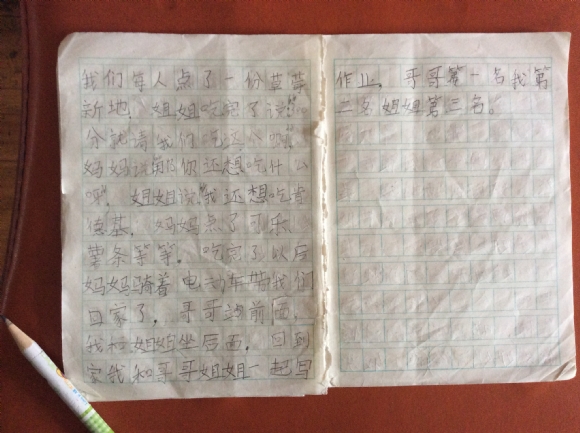 我们每人点了一份草莓
新地，姐姐吃完了说：“
你就请我们吃这个啊”
妈妈说：你还想吃什么
啊”，姐姐说：“我还想吃肯
德基，妈妈点了可乐，
薯条等等。吃完了以后
妈妈骑着电动车带我们
回家了，哥哥站前面，
我和姐姐坐后面，回到
家我和哥哥姐姐一起写
作业，哥哥第一名我第
二名姐姐第三名。